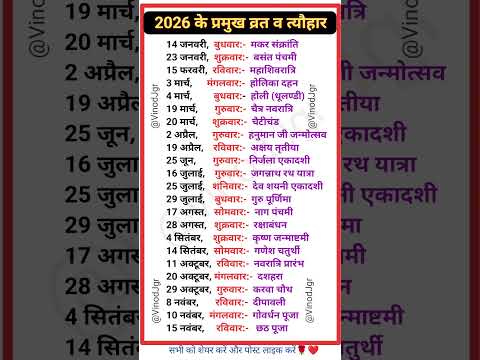 2026 के प्रमुख व्रत व त्यौहार
14 जनवरी, बुधवार:- मकर संक्रांति
23 जनवरी, शुक्रवार:- बसंत पंचमी
15 फरवरी, रविवार:- महाशिवरात्रि
3 मार्च, मंगलवार:- होलिका दहन
4 मार्च, बुधवार:- होली (धूलण्डी)
19 मार्च, गुरुवार:- चैत्र नवरात्रि
20 मार्च, शुक्रवार:- चेटीचंड
2 अप्रैल, गुरुवार:- हनुमान जी जन्मोत्सव
19 अप्रैल, रविवार:- अक्षय तृतीया
25 जून, गुरुवार:- निर्जला एकादशी
16 जुलाई, गुरुवार:- जगन्नाथ रथ यात्रा
25 जुलाई, शनिवार:- देव शयनी एकादशी
29 जुलाई, बुधवार:- गुरु पूर्णिमा
17 अगस्त, सोमवार:- नाग पंचमी
28 अगस्त, शुक्रवार:- रक्षाबंधन
4 सितंबर, शुक्रवार:- कृष्ण जन्माष्टमी
14 सितंबर, सोमवार:- गणेश चतुर्थी
11 अक्टूबर, रविवार:- नवरात्रि प्रारंभ
20 अक्टूबर, मंगलवार:- दशहरा
29 अक्टूबर, गुरुवार:- करवा चौथ
8 नवंबर, रविवार:- दीपावली
10 नवंबर, मंगलवार:- गोवर्धन पूजा
15 नवंबर, रविवार:- छठ पूजा
सभी को शेयर करें और पोस्ट लाइक करें🌹❤️
@VinodJgr
@VinodJgr
@VinodJgr
@VinodJgr
@VinodJgr
@VinodJgr
19 मार्च,
20 मार्च,
2 अप्रैल,
19 अप्रैल
25 जून,
16 जुलाई
25 जुलाई
29 जुलाई
17 अगस
28 अगस
4 सितंब
14 सितं
जी जन्मोत्सव
तीया
एकादशी
रथ यात्रा
एकादशी
र्णिमा
मी
धन
न्माष्टमी
चतुर्थी